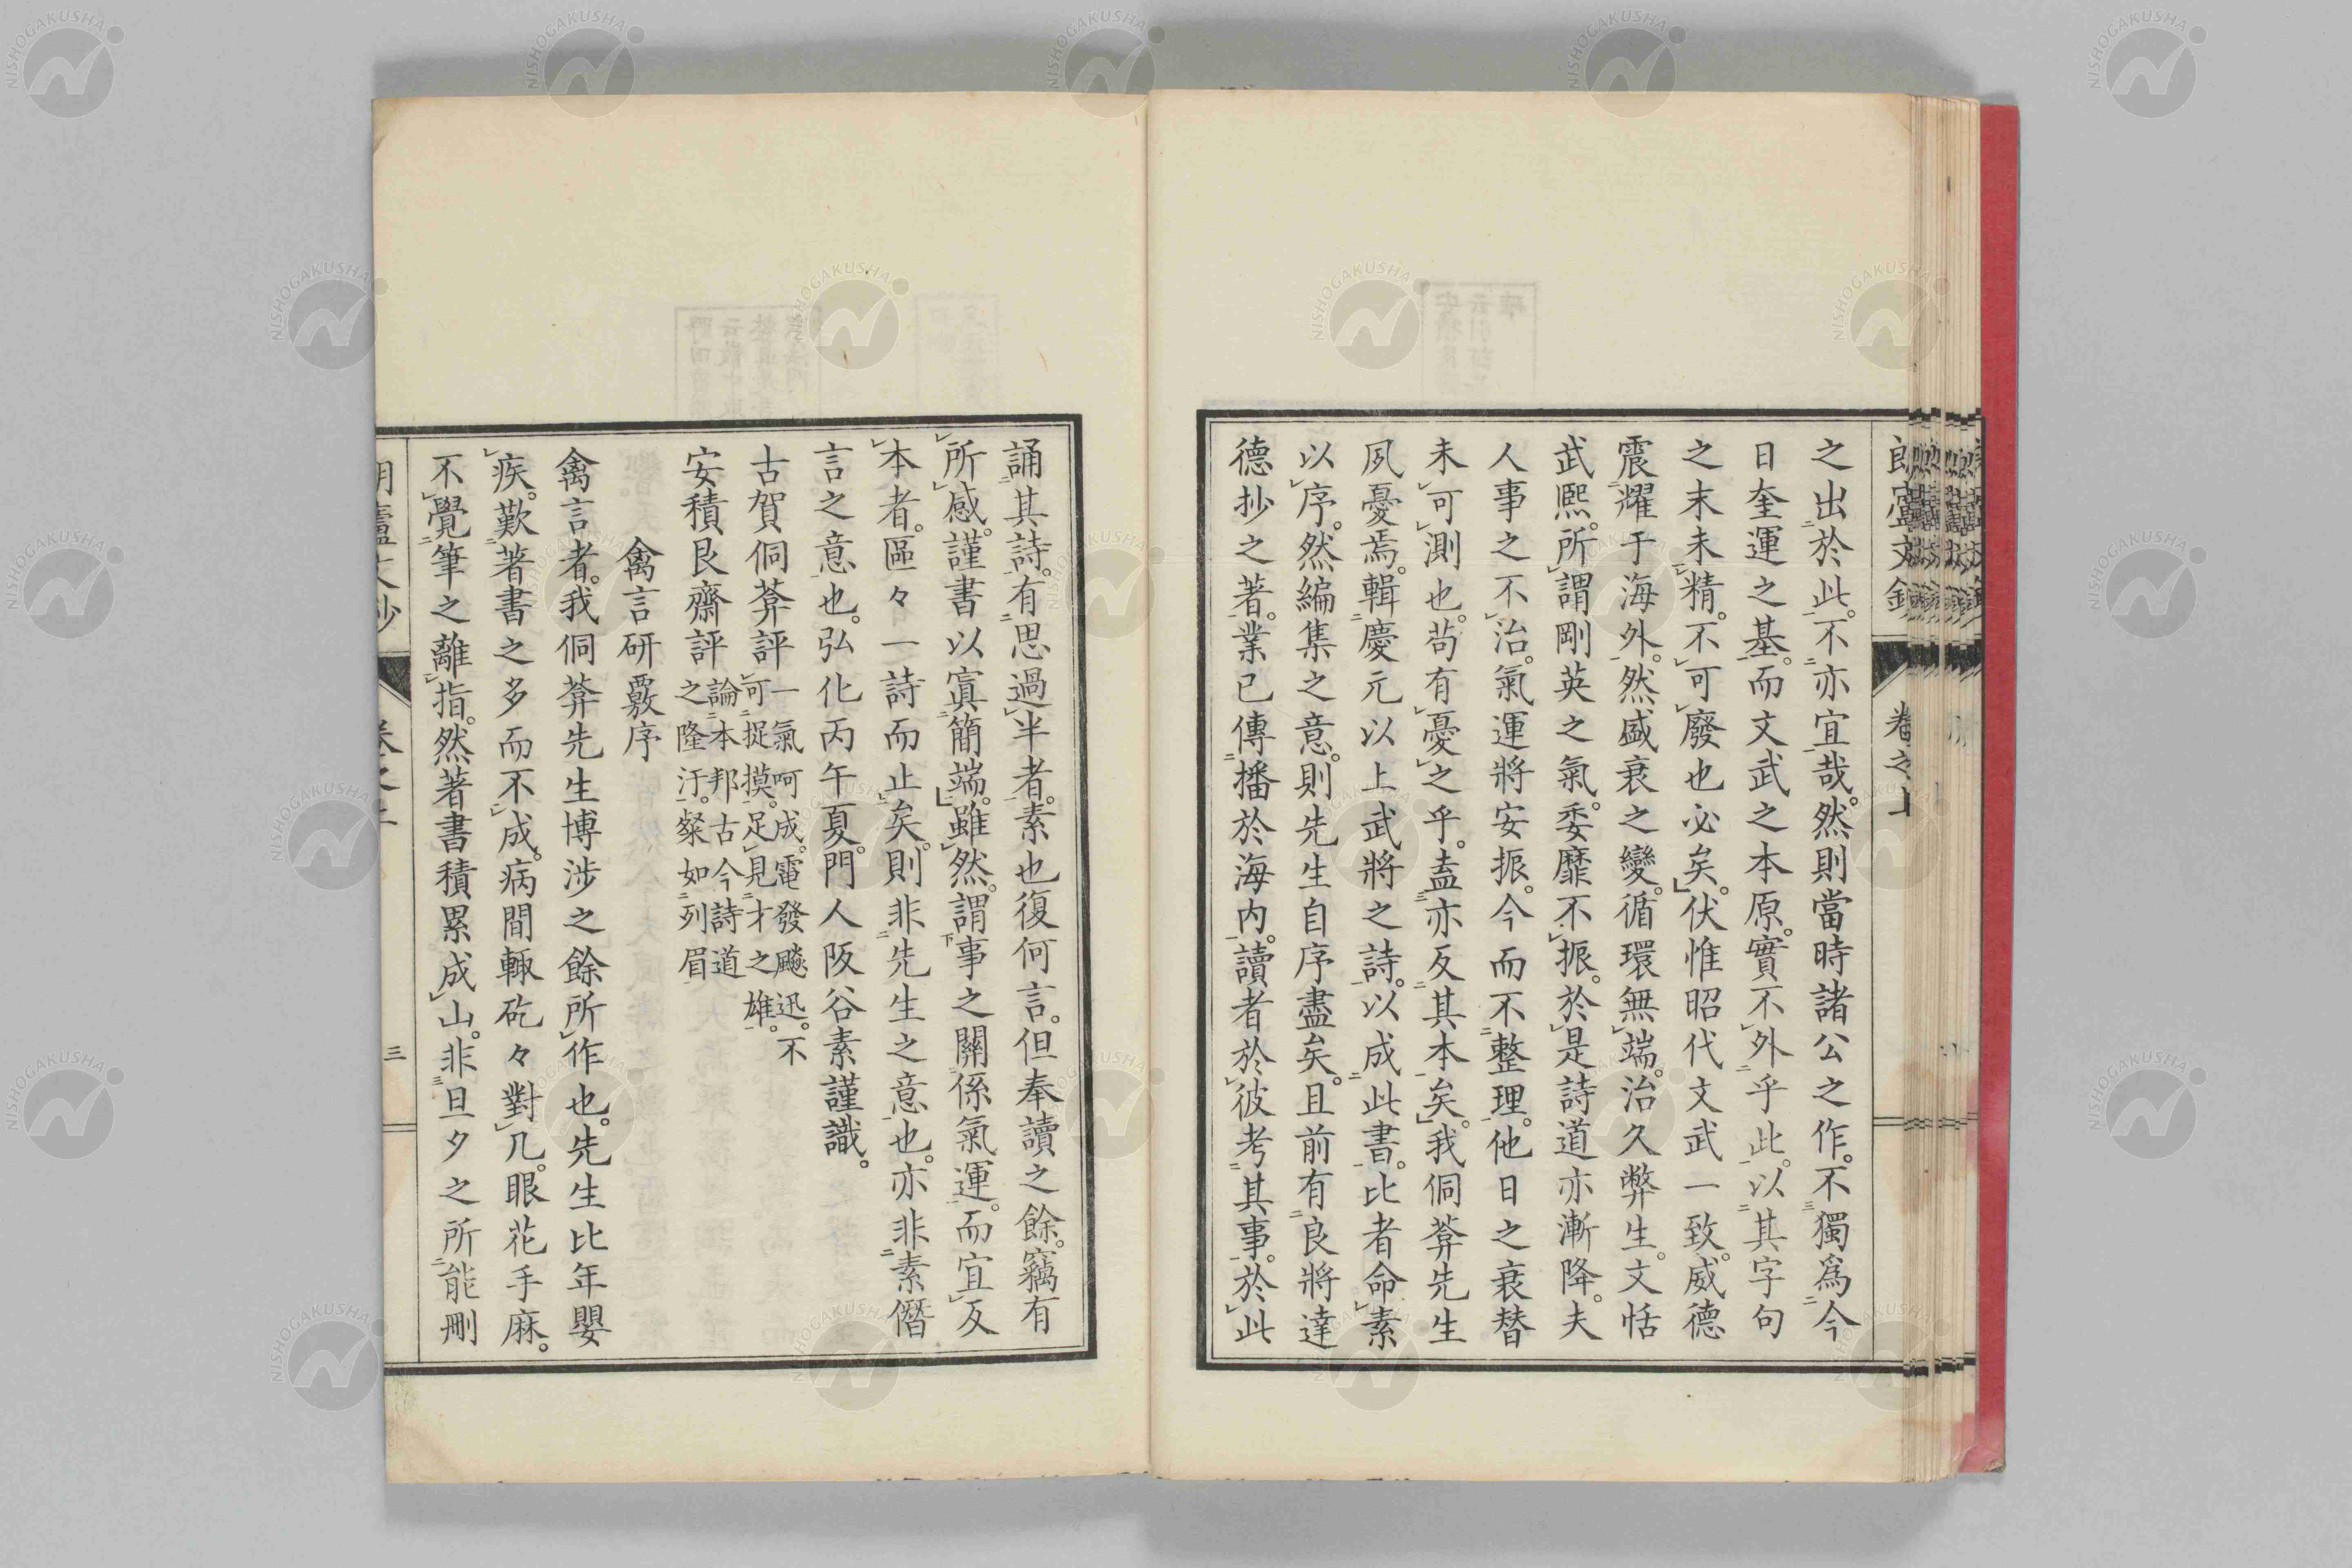 之出於此。不亦宜哉。然則當時諸公之作。不獨爲今
日奎運之基。而文武之本原。實不外乎此。以其字句
之末未精。不可廢也必矣。伏惟昭代文武一致。威德
震耀于海外。然盛衰之變。循環無端。治久弊生。文恬
武熙。所謂剛英之氣。委靡不振。於是詩道亦漸降。夫
人事之不治。氣運將安振。今而不整理。他日之衰替
未可測也。苟有憂之乎。盍亦反其本矣。我侗葊先生
夙憂焉。輯慶元以上武將之詩。以成此書。比者命素
以序。然編集之意。則先生自序盡矣。且前有良將達
德抄之著。業已傳播於海内。讀者於彼考其事。於此
誦其詩。有思過半者。素也復何言。但奉讀之餘。竊有
所感。謹書以寘簡端。雖然。謂事之關係氣運。而宜反
本者。區々一詩而止矣。則非先生之意也。亦非素僭
言之意也。弘化丙午夏。門人阪谷素謹識。
古賀侗葊評 一氣呵成。電發飈迅。不
可捉摸。足見才之雄。
安積艮齋評 論本邦古今詩道
之隆汙。粲如列眉
禽言研覈序
禽言者。我侗葊先生博涉之餘所作也。先生比年嬰
疾。歎著書之多而不成。病間輙矻々對几。眼花手麻。
不覺筆之離指。然著書積累成山。非旦夕之所能刪
朗廬文鈔 卷之上 三
NISHOGAKUSHA